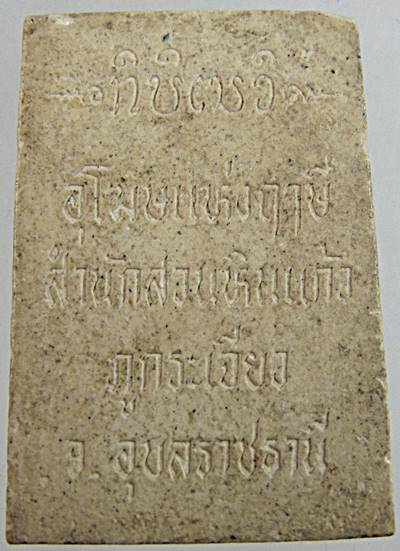 อุโฆษแห่งฤาษี
สำนักสวนหินแก้ว
ภูกระเจียว
จ. อุบลราชธานี